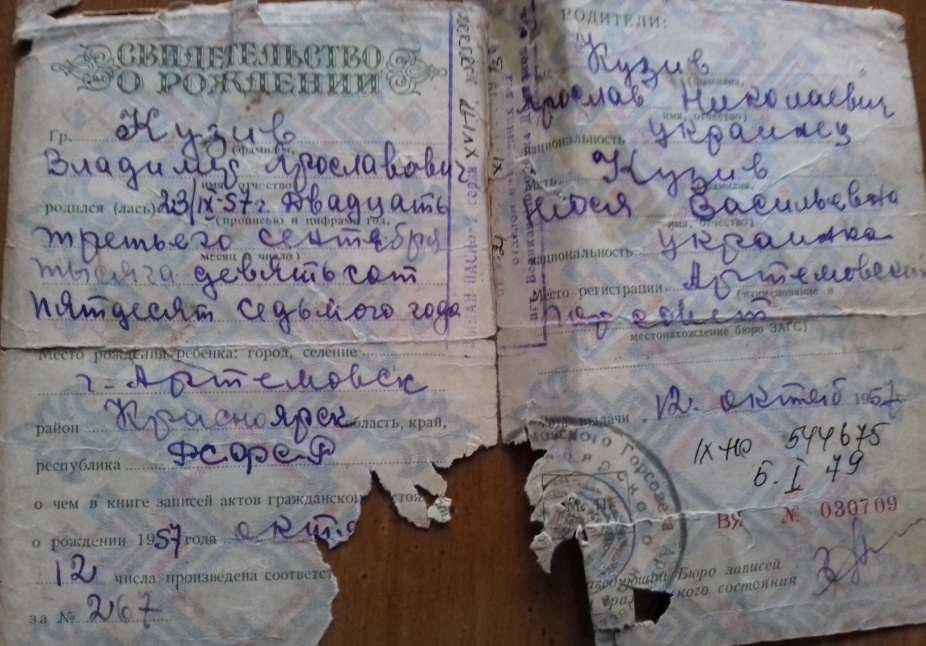 СВИДЕТЕЛЬСТВО
О РОЖДЕНИИ
Гр. Кузив
(фамилия,
Владимир Ярославович
имя, отчество)
родился (лась) 23/IX-57 г. Двадцать
(прописью и цифрами год,
третьего сентября
месяц, число)
тысяча девятьсот
пятдесят седьмого года
Место рождения ребенка: город, селение
г. Артемовск
район Красноярск область, край,
республика РСФСР
о чем в книге записей актов гражданского
о рождении 1957 года
12 числа произведена
за № 267
РОДИТЕЛИ:
Кузив
(фамилия,
Ярослав Николаевич
имя, отчество)
национальность украинец
Мать Кузив
Зюся Васильевна
имя, отчество)
национальность украинка
Место регистрации Артемовский
(наименование и
горсовет
местонахождение бюро ЗАГС)
Дата выдачи 12. октяб 1957.
544675
6. I 79
ВЯ № 030709
Заведующий Бюро записей
состояния